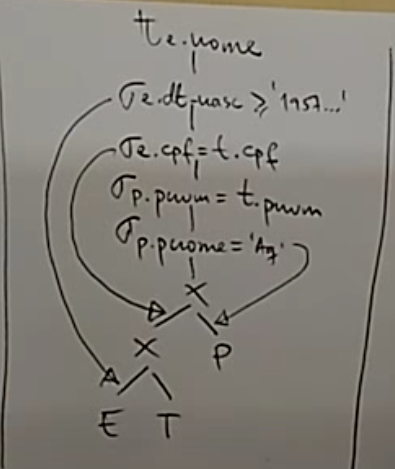 π e.nome
σ e.dt-nasc ≥ '1957...'
σ e.cpf = t.cpf
σ p.pnum = t.pnum
σ p.pnome = 'Aq'
X
X P
E T